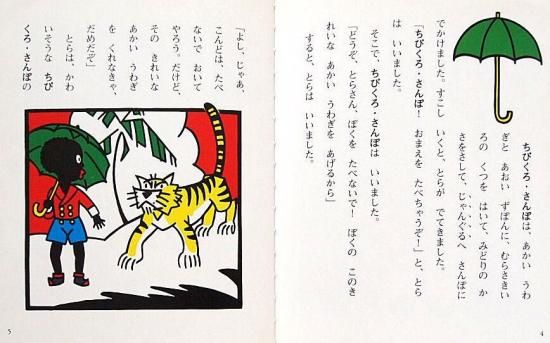 ちびくろ・さんぼは、あかい うわ
ぎと あおい ずぼんに、むらさきい
ろの くつを はいて、みどりの か
さをさして、じゃんぐるへ さんぽに
でかけました。すこし いくと、とらが でてきました。
「ちびくろ・さんぼ！ おまえを たべちゃうぞ！」と、とら
は いいました。
そこで、ちびくろ・さんぼは いいました。
「どうぞ、とらさん、ぼくを たべないで！ ぼくの このき
れいな あかい うわぎを あげるから」
すると、とらは いいました。
4
「よし、じゃあ、
こんどは、たべ
ないで おいて
やろう。だけど、
その きれいな
あかい うわぎ
を くれなきゃ、
だめだぞ」
とらは、かわ
いそうな ちび
くろ・さんぼの
5